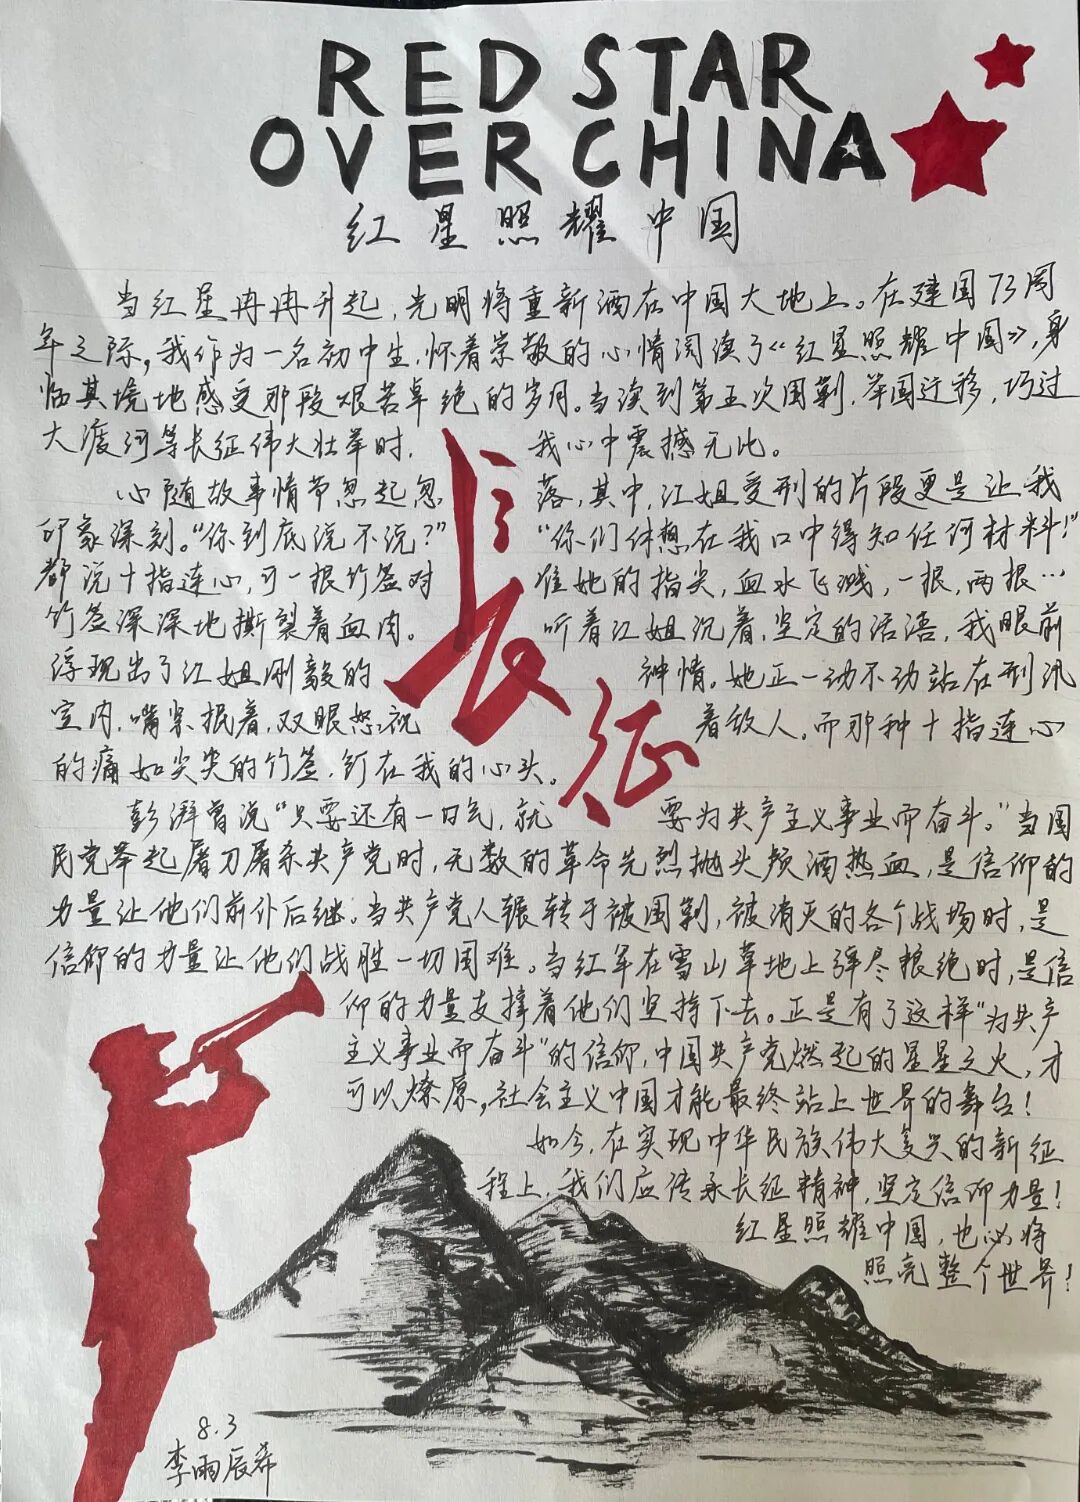 RED STAR
OVER CHINA
红星照耀中国
当红星冉冉升起,光明将重新洒在中国大地上。在建国73周
年之际,我作为一名初中生,怀着崇敬的心情阅读了《红星照耀中国》,身
临其境地感受那段艰苦卓绝的岁月。当读到第五次围剿,举国迁移,巧过
大渡河等长征伟大壮举时,我心中震撼无比。
心随故事情节忽起忽落,其中,江姐受刑的片段更是让我
印象深刻。“你到底说不说?”“你们休想在我口中得知任何材料!”
都说十指连心,可一根竹签对准她的指尖,血水飞溅,一根,两根…
竹签深深地撕裂着血肉。听着江姐沉着,坚定的话语,我眼前
浮现出了江姐刚毅的神情。她正一动不动站在刑讯
室内,嘴紧抿着,双眼怒视着敌人。而那种十指连心
的痛如尖尖的竹签,钉在我的心头。
长征
彭湃曾说“只要还有一口气,就要为共产主义事业而奋斗。”当国
民党举起屠刀屠杀共产党时,无数的革命先烈抛头颅洒热血,是信仰的
力量让他们前仆后继。当共产党人辗转于被围剿,被消灭的各个战场时,是
信仰的力量让他们战胜一切困难。当红军在雪山草地上弹尽粮绝时,是信
仰的力量支撑着他们坚持下去。正是有了这样“为共产
主义事业而奋斗”的信仰,中国共产党燃起的星星之火,才
可以燎原,社会主义中国才能最终站上世界的舞台!
如今,在实现中华民族伟大复兴的新征
程上,我们应传承长征精神,坚定信仰力量!
红星照耀中国,也必将
照亮整个世界!
8.3
李雨辰希